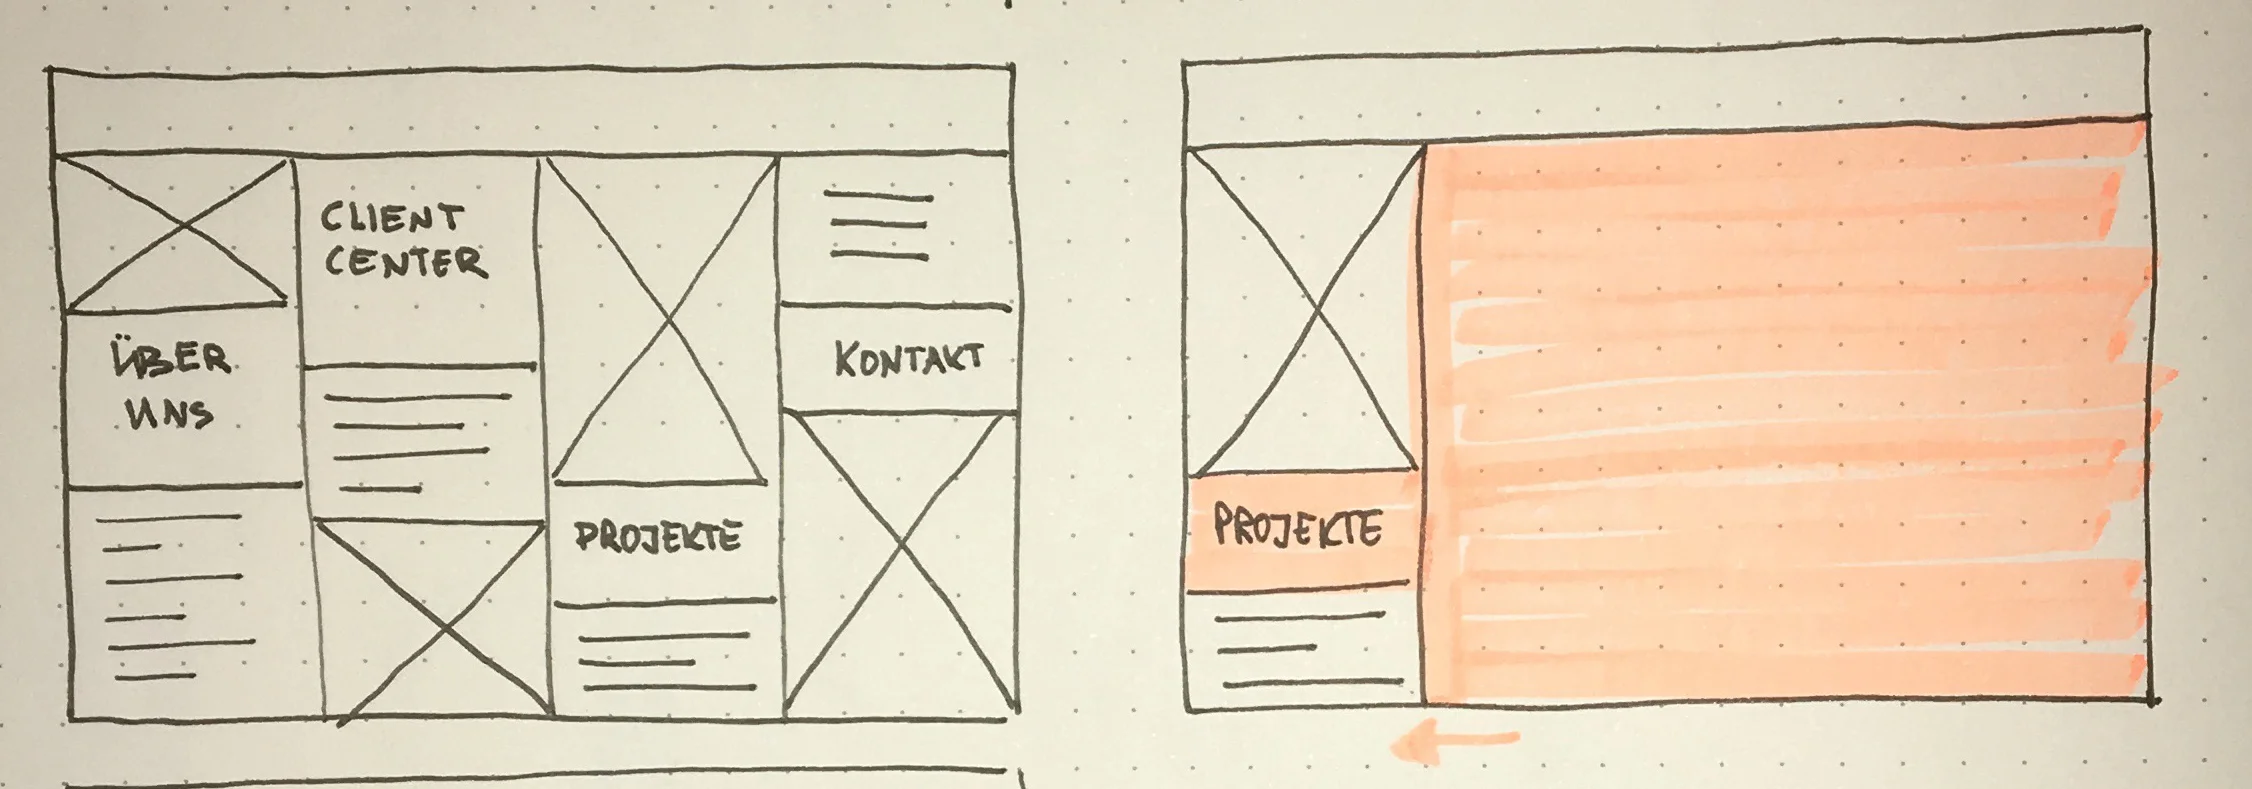 ÜBER
UNS
CLIENT
CENTER
PROJEKTE
KONTAKT
PROJEKTE